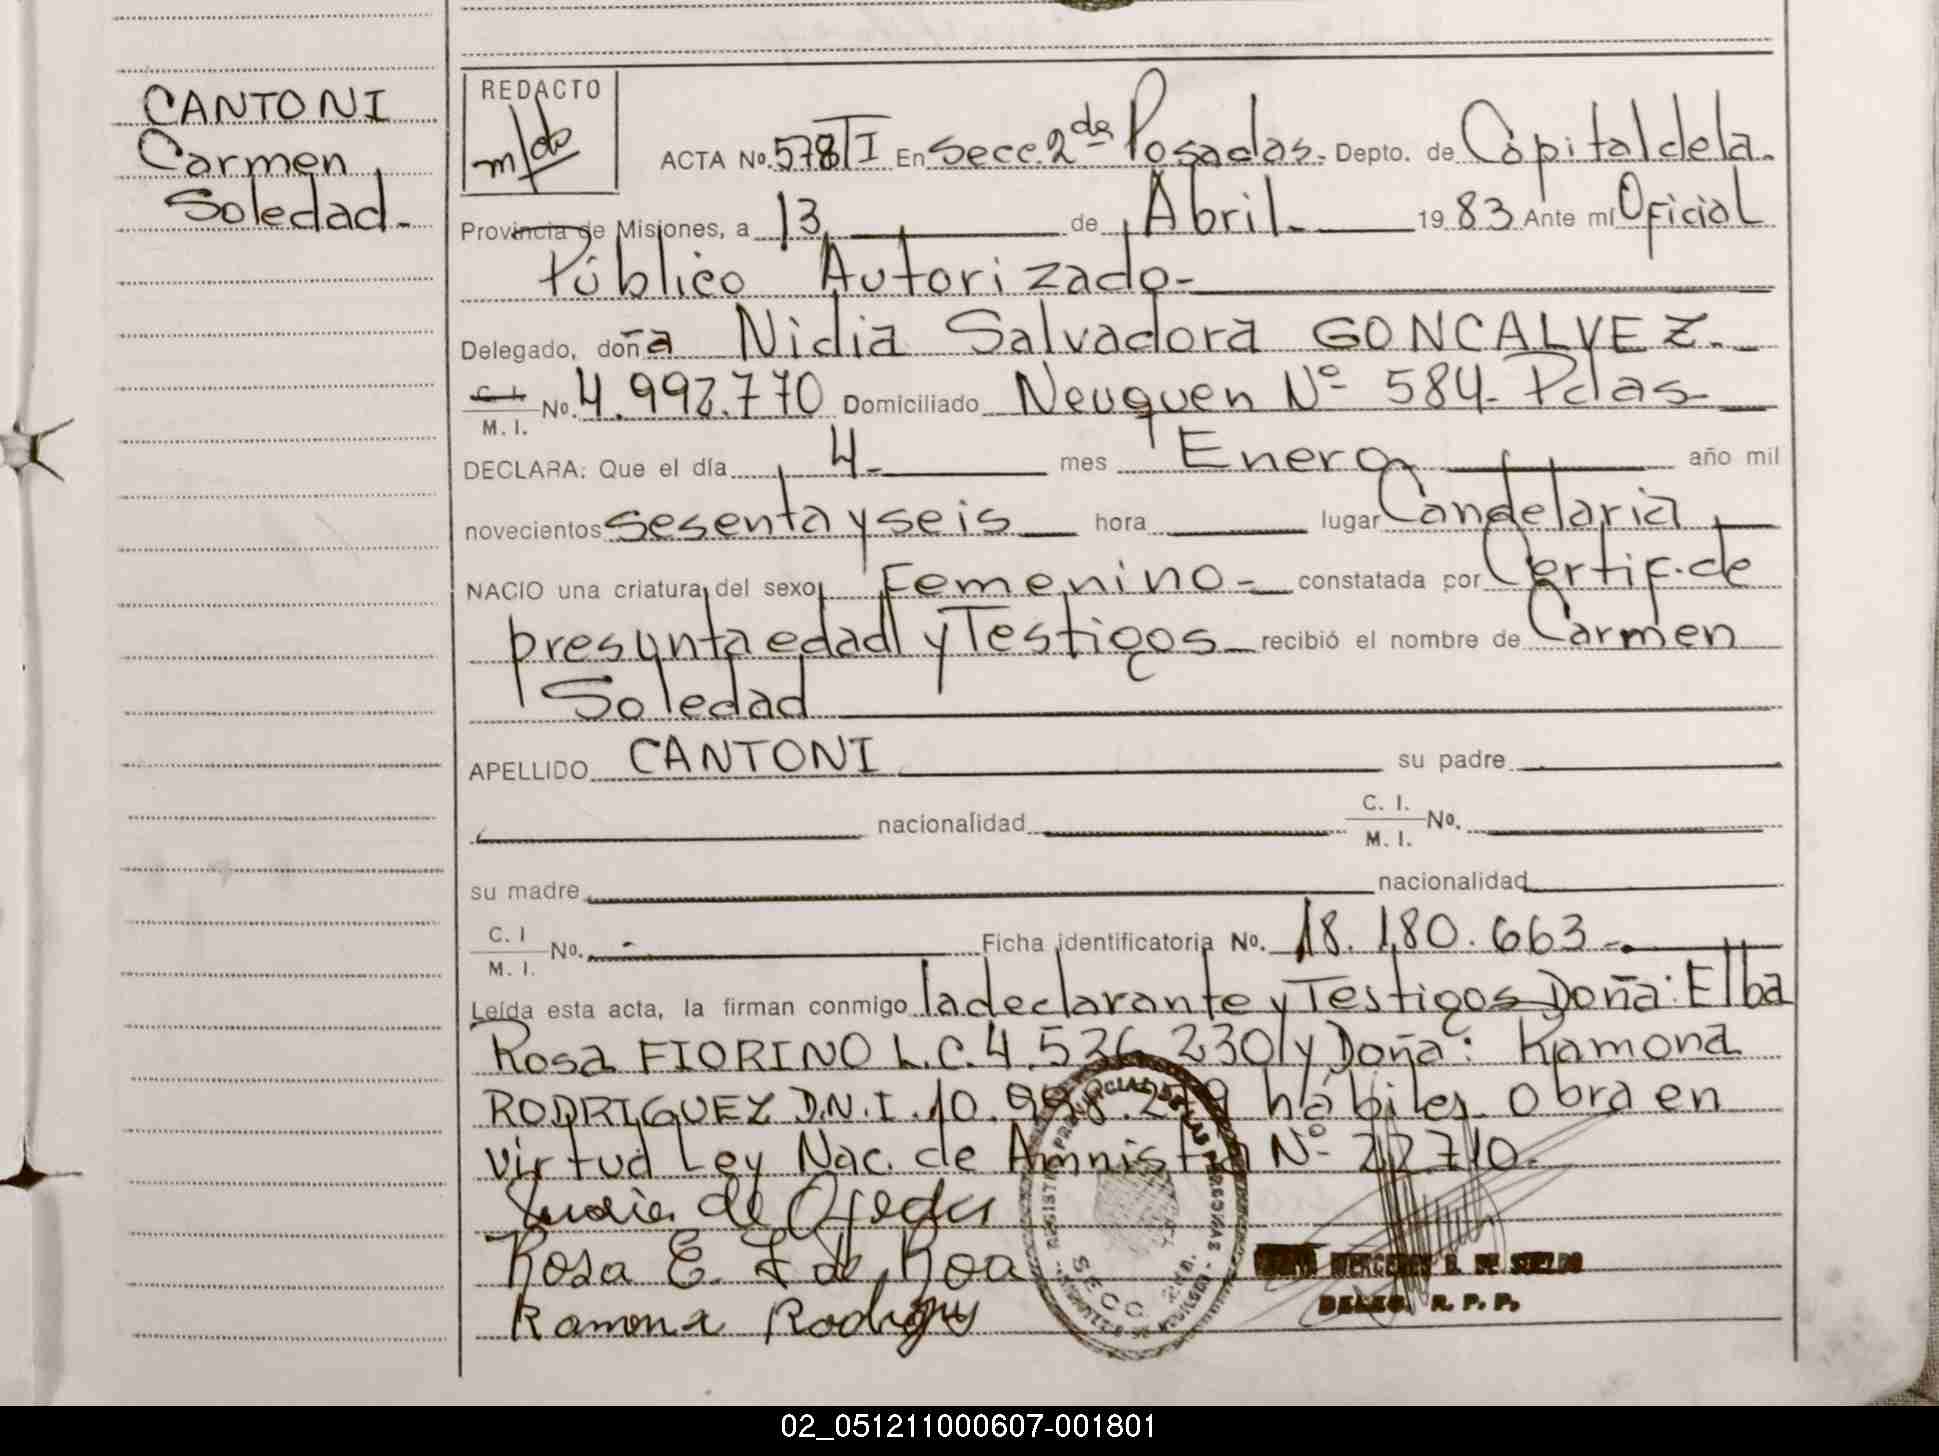 CANTONI
Carmen
Soledad.-
REDACTO
ACTA No. 578/T I En Secc. 2da Posadas.- Depto. de Capital de la.
Provincia de Misiones, a 13 de Abril.- 19 83 Ante mi Oficial
Público Autorizado-
Delegado, doña Nidia Salvadora GONCALVEZ.-
C. I. M. I. No. 4.992.770 Domiciliado Neuquen Nº 584- Pdas-
DECLARA: Que el día 4- mes Enero año mil
novecientos sesenta y seis hora lugar Candelaria
NACIO una criatura del sexo Femenino- constatada por Certif. de
presunta edad y Testigos- recibió el nombre de Carmen
Soledad
APELLIDO CANTONI su padre
nacionalidad C. I. M. I. No.
su madre nacionalidad
C. I M. I. No. - Ficha identificatoria No. 18.180.663-.
Leída esta acta, la firman conmigo la declarante y Testigos Doña: Elba
Rosa FIORINO L.C. 4.536.230 y Doña: Ramona
RODRIGUEZ D.N.I. 10.998.279 hábiles. Obra en
virtud Ley Nac. de Amnistia Nº 22710.
de Ojeda
Rosa E. F de Roa
Ramona Rodriguez
SECC. 2da.
MERCEDES DE
DELEG. R. P. P.
02_051211000607-001801